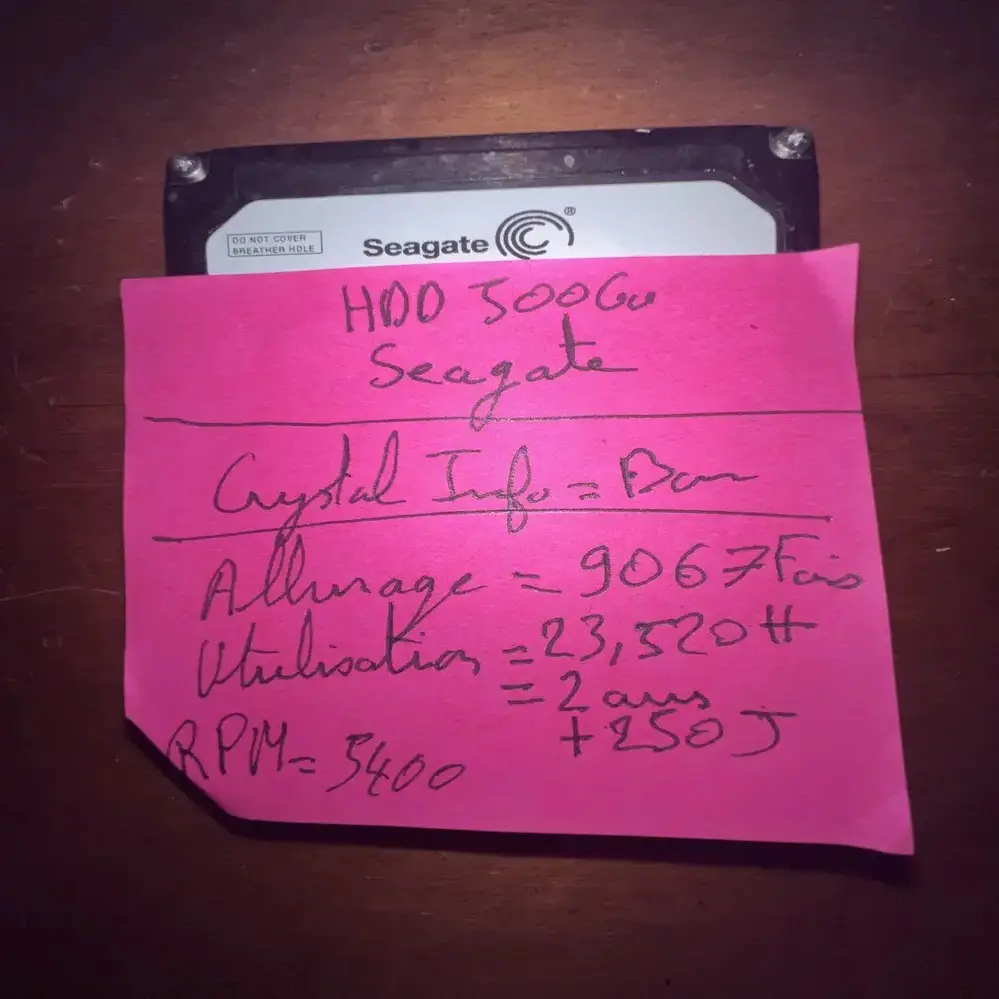 DO NOT COVER
BREATHER HOLE
Seagate ®
HDD 500Go
Seagate
Crystal Info = Bon
Allumage = 9067 Fois
Utilisation = 23,520 H
= 2 ans
+ 250 J
RPM = 5400